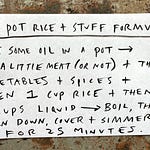 POT RICE + STUFF FORMU
SOME OIL IN A POT →
A LITTLE MEAT (OR NOT) + TH
ETABLES + SPICES +
EN 1 CUP RICE + THEN
UPS LIQUID → BOIL, TH
N DOWN, COVER + SIMMER
FOR 25 MINUTES.